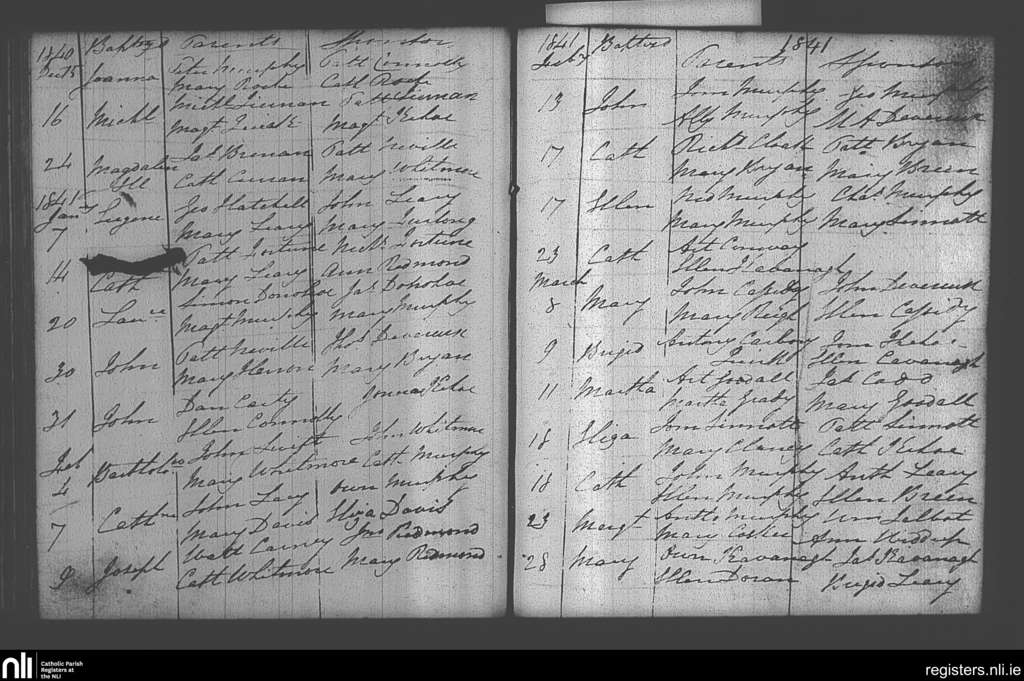 1840 Baptized Parents Sponsors
Dec 15 Joanna Peter Murphy Patt Connolly
Mary Roche Cath Roch
16 Michl Michl Sinnan Patt Sinnan
Magt Magt Kehoe
24 Magdalen Jas Brenan Patt Neville
Ill Cath Mary Whitmore
1841
Jany Eugene Geo Hatchell John Leary
7 Mary Leary Mary Furlong
14 Cath Patt Fortune Nichs Fortune
Mary Leary Ann Redmond
20 Laurce Simon Donohoe Jas Donohoe
Magt Murphy Mary Murphy
30 John Patt Neville Thos Devereux
Mary Mary Bryan
31 John Dan Carty Kehoe
Ellen Connolly
Feb Bartholow John Swift John Whitmore
4 Mary Whitmore Cath Murphy
7 Cathne John Lacy Own Murphy
Mary Davis Eliza Davis
9 Joseph Watt Carney Jas Redmond
Cath Whitmore Mary Redmond
1841 Baptized 1841
Feby Parents Sponsors
13 John Jim Murphy Geo Murphy
Ally Murphy M A Devereux
17 Cath Richd Cloak Patt Bryan
Mary Mary Breen
17 Ellen Murphy Chas Murphy
Mary Murphy Mary Sinnott
23 Cath Art Conway
Ellen Kavanagh
March
8 Mary John Cassidy John Devereux
Mary Ellen Cassidy
9 Brigid Antony Tom
Ellen Cavanagh
11 Martha Art Goodall Jas Codd
Martha Mary Goodall
18 Eliza Tom Sinnott Patt Sinnott
Mary Clancy Cath Kehoe
18 Cath John Murphy Anth Leary
Ellen Murphy Ellen Breen
23 Margt Anth Murphy Wm Talbot
Mary Ann
28 Mary Own Kavanagh Jas Kavanagh
Ellen Doran Brigid Leary
nli Catholic Parish
Registers at
the NLI
registers.nli.ie